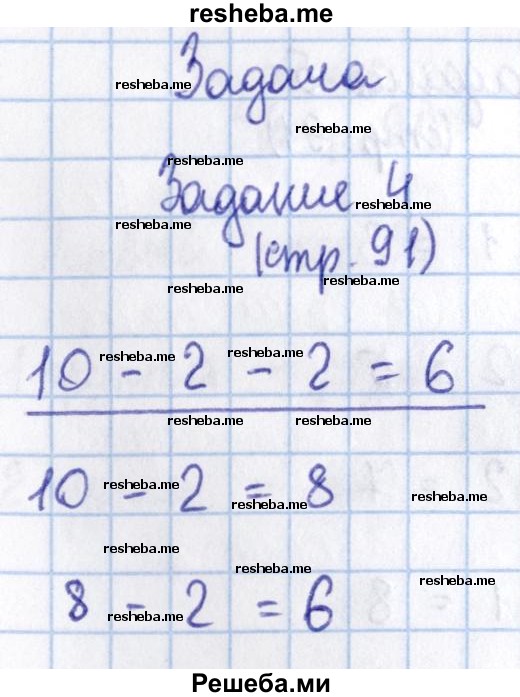 resheba.me
Задача
resheba.me
resheba.me
Задание 4
resheba.me
resheba.me
(стр. 91)
resheba.me
resheba.me
10 - 2 - 2 = 6
resheba.me resheba.me
resheba.me resheba.me
10 - 2 = 8
resheba.me
resheba.me
resheba.me
resheba.me
resheba.me
resheba.me
8 - 2 = 6
resheba.me
Решеба.ми